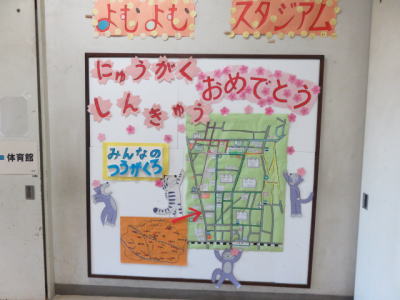 よむよむ スタジアム
にゅうがく
おめでとう
しんきゅう
みんなの
つうがくろ
体育館